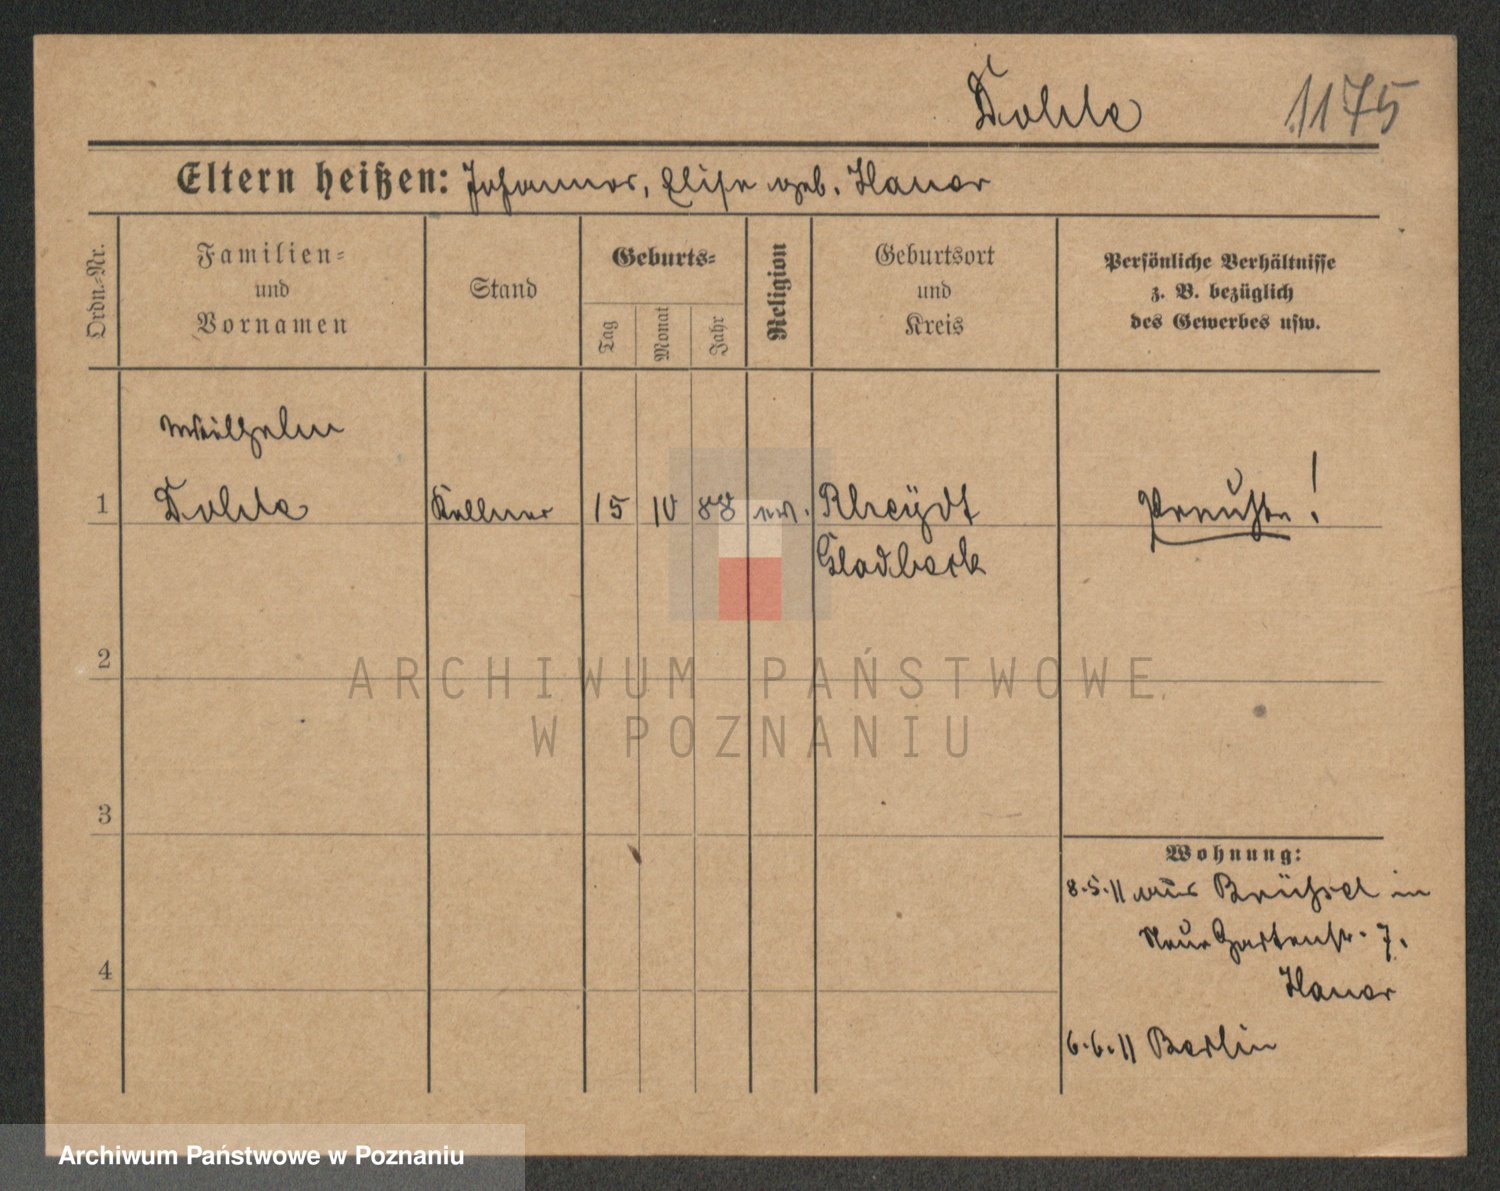 Dohle 1175
Eltern heißen: Johannes, Elise geb. Hauer
Ordn.-Nr.
Familien-
und
Vornamen
Stand
Geburts-
Tag
Monat
Jahr
Religion
Geburtsort
und
Kreis
Persönliche Verhältnisse
z. B. bezüglich
des Gewerbes usw.
Wilhelm
1 Dohle Kellner 15 10 88 ev. Rheÿdt Preuße!
Gladbach
2
ARCHIWUM PAŃSTWOWE
W POZNANIU
3
Wohnung:
8.5.11 aus Brüssel in
Neue Gartenstr. 7.
4
Hauer
6.6.11 Berlin
Archiwum Państwowe w Poznaniu